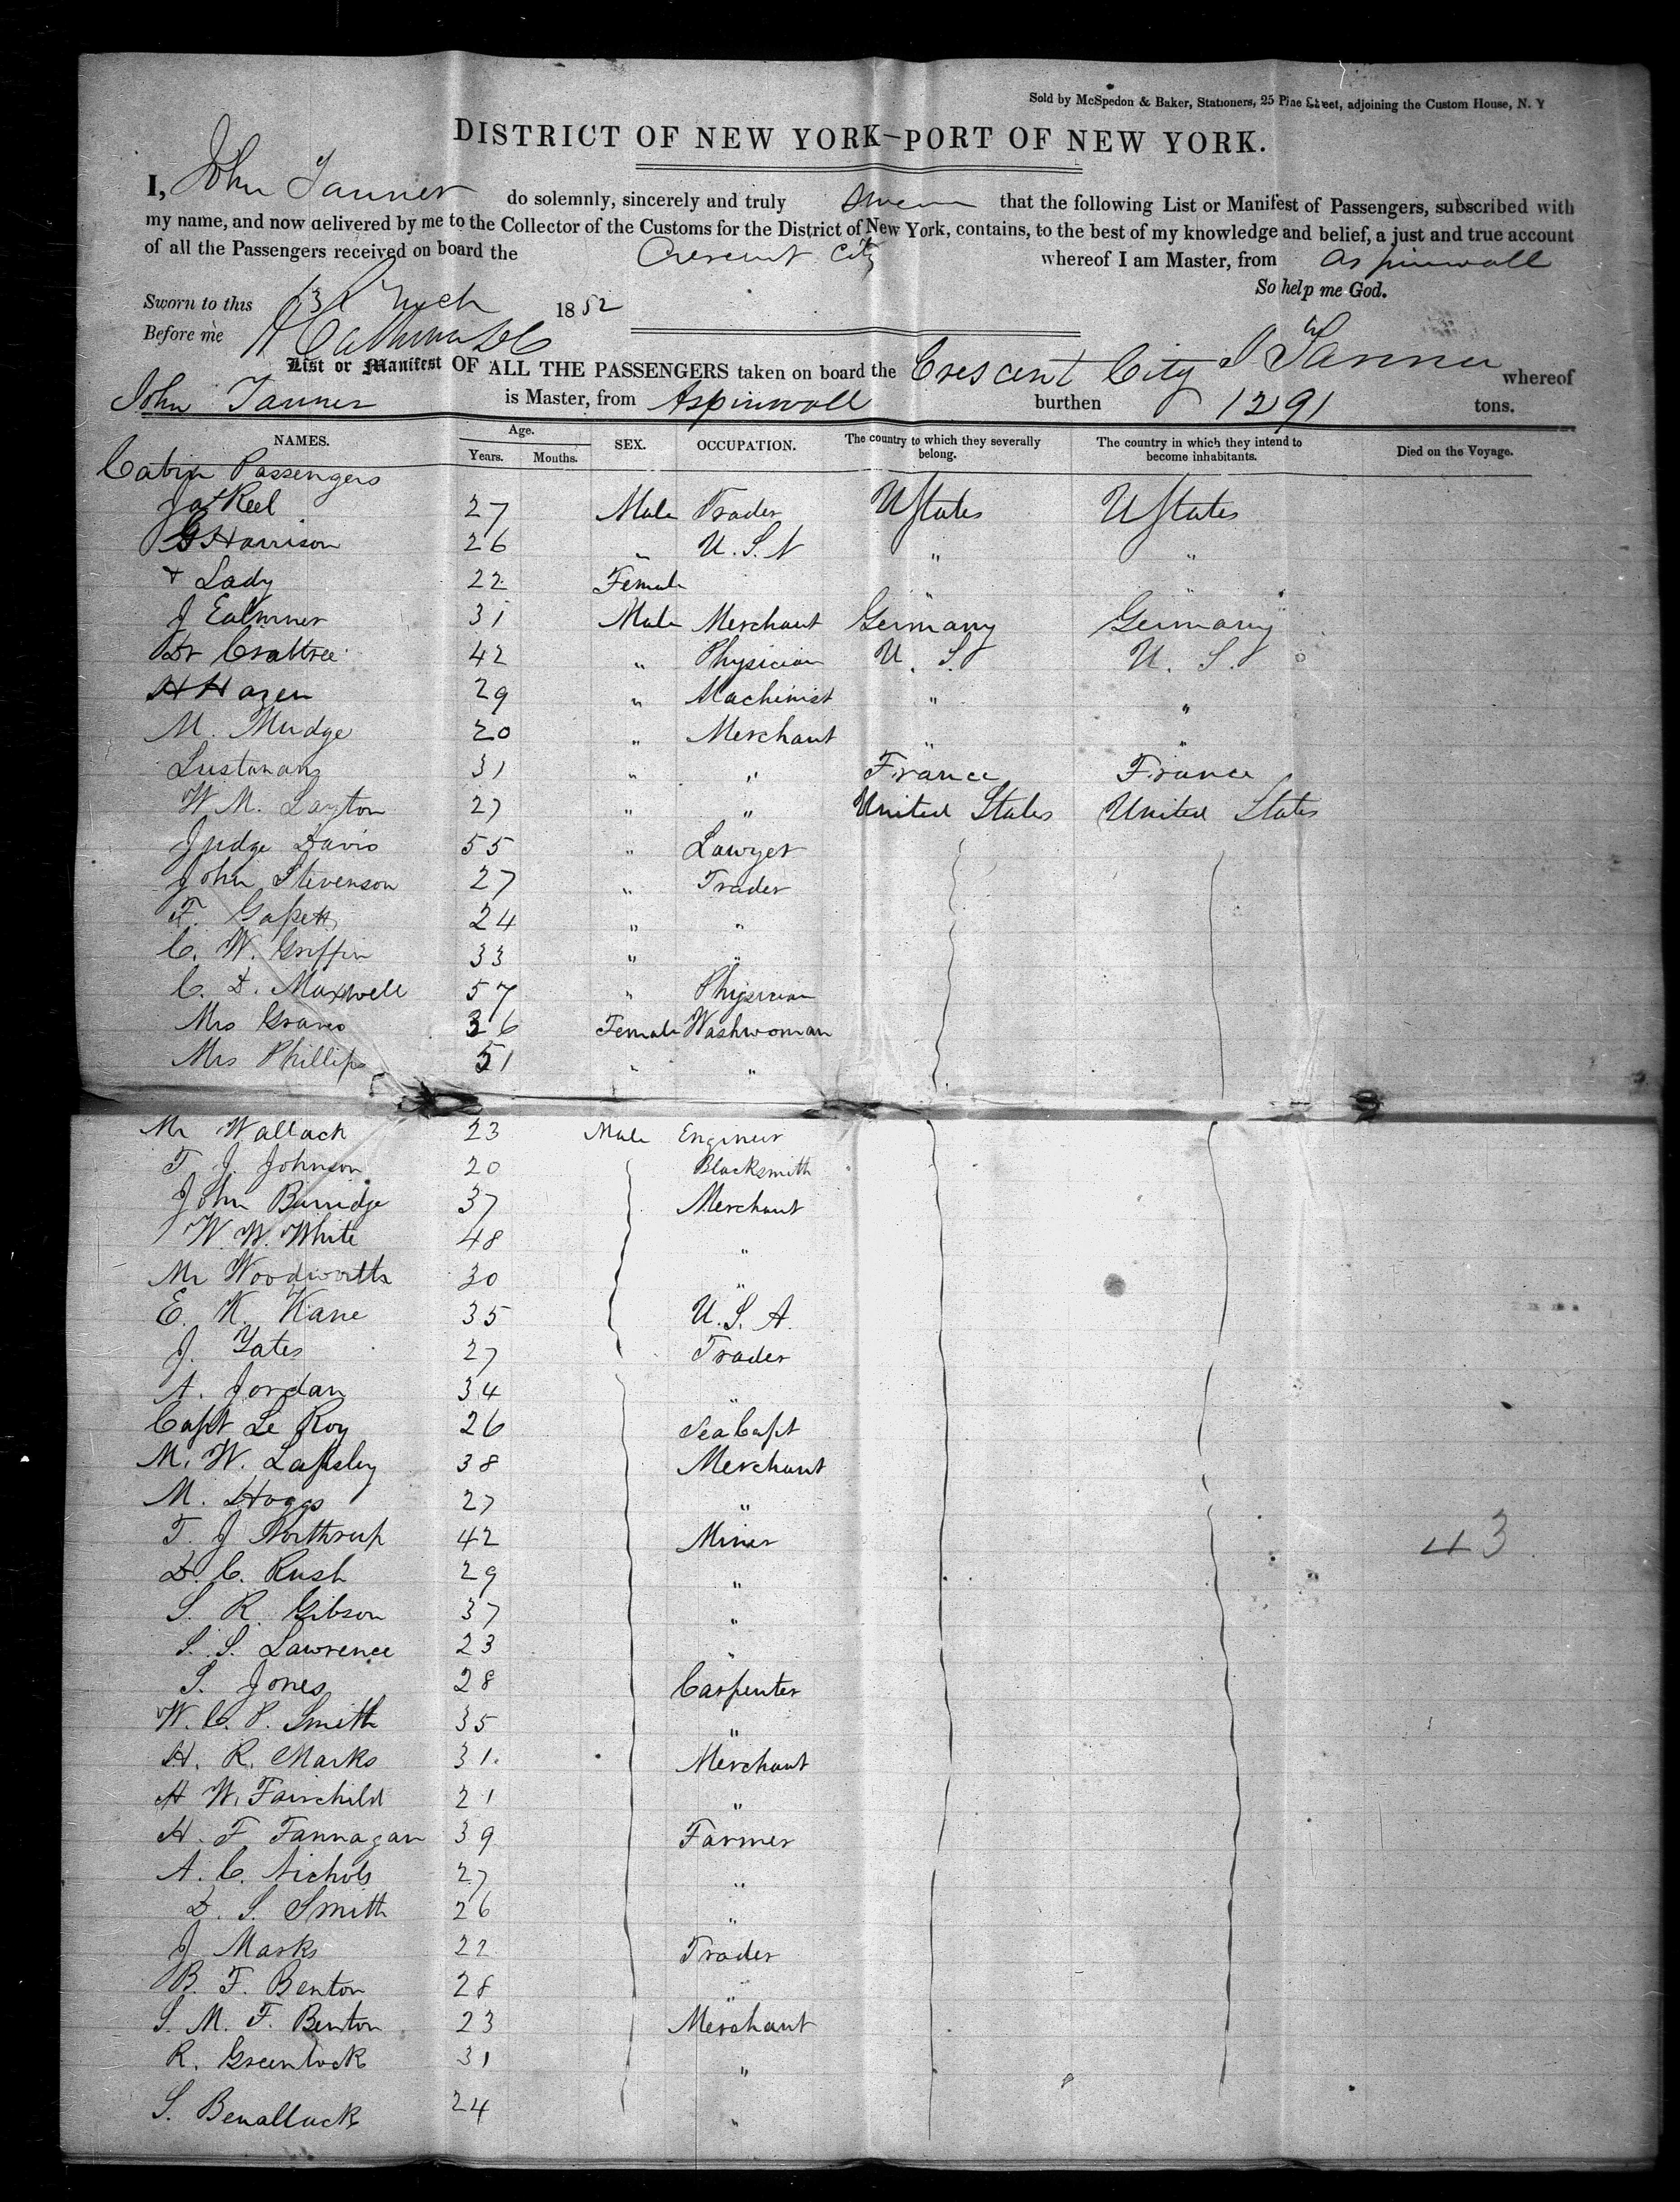 Sold by McSpedon & Baker, Stationers, 25 Pine Street, adjoining the Custom House, N. Y
DISTRICT OF NEW YORK—PORT OF NEW YORK.
I, John Tanner do solemnly, sincerely and truly swear that the following List or Manifest of Passengers, subscribed with
my name, and now delivered by me to the Collector of the Customs for the District of New York, contains, to the best of my knowledge and belief, a just and true account
of all the Passengers received on board the Crescent City whereof I am Master, from Aspinwall
So help me God.
Sworn to this 1852
Before me
List or Manifest OF ALL THE PASSENGERS taken on board the Crescent City J Tanner whereof
John Tanner is Master, from Aspinwall burthen 1291 tons.
NAMES. Age. Years. Months. SEX. OCCUPATION. The country to which they severally belong. The country in which they intend to become inhabitants. Died on the Voyage.
Cabin Passengers
Jas Keel 27 Male Trader UStates UStates
G Harrison 26 " U.S.N " "
+ Lady 22 Female " "
J 31 Male Merchant Germany Germany
Dr Crabtree 42 " Physician U. S. U. S.
H Hazen 29 " Machinist " "
M. Mudge 20 " Merchant " "
31 " " France France
W M. Layton 27 " " United States United States
Judge Davis 55 " Lawyer
John Stevenson 27 " Trader
F. 24 " "
C. W. Griffin 33 " "
C. D. Maxwell 57 " Physician
Mrs Graves 36 Female Washwoman
Mrs Phillips 51 " "
Mr Wallack 23 Male Engineer
T. J. Johnson 20 Blacksmith
John Burridge 37 Merchant
W. W. White 48 "
Mr Woodworth 30 "
E. K. Kane 35 U.S.A.
J. Yates 27 Trader
A. Jordan 34 "
Capt Le Roy 26 Sea Capt
M. W. Lapsley 38 Merchant
M. Hoggs 27 "
T. J Northrup 42 Miner 43
D. C. Rush 29 "
S. R. Gibson 37 "
S. S. Lawrence 23 "
S. Jones 28 Carpenter
W. C. P. Smith 35 "
H. R. Marks 31. Merchant
H W. Fairchild 21 "
H. F Fannagan 39 Farmer
A. C. Nichols 27 "
D. S. Smith 26 "
J Marks 22 Trader
B. F. Benton 28 "
S. M. F. Benton 23 Merchant
R. Greenlock 31 "
S. Benallack 24 "